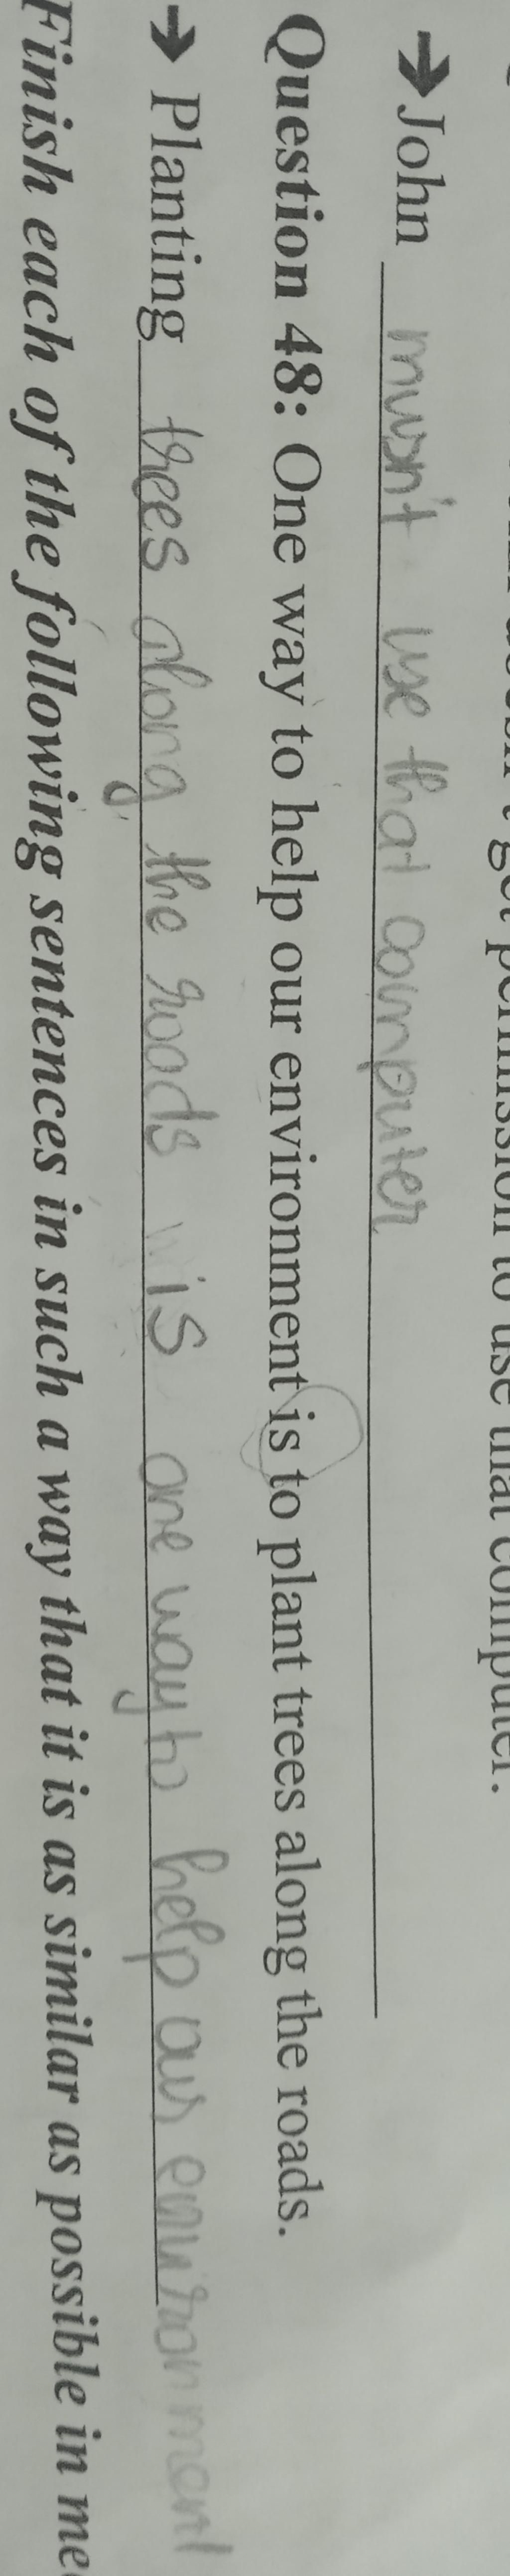 permission to use that computer.
➔ John musn't use that computer
Question 48: One way to help our environment is to plant trees along the roads.
➔ Planting trees along the roads is one way to help our environment
Finish each of the following sentences in such a way that it is as similar as possible in